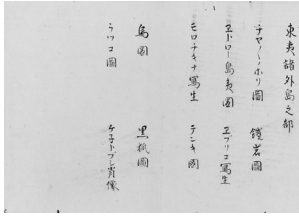 東夷諸外島之部
チヤノノホリ圖　鐙岩圖
ヱトロー島夷圖　ヱブリコ寫生
モロチキナ寫生　テンキ圖
鳥圖　黒狐圖
ラッコ圖　ケ子トプレ肖像